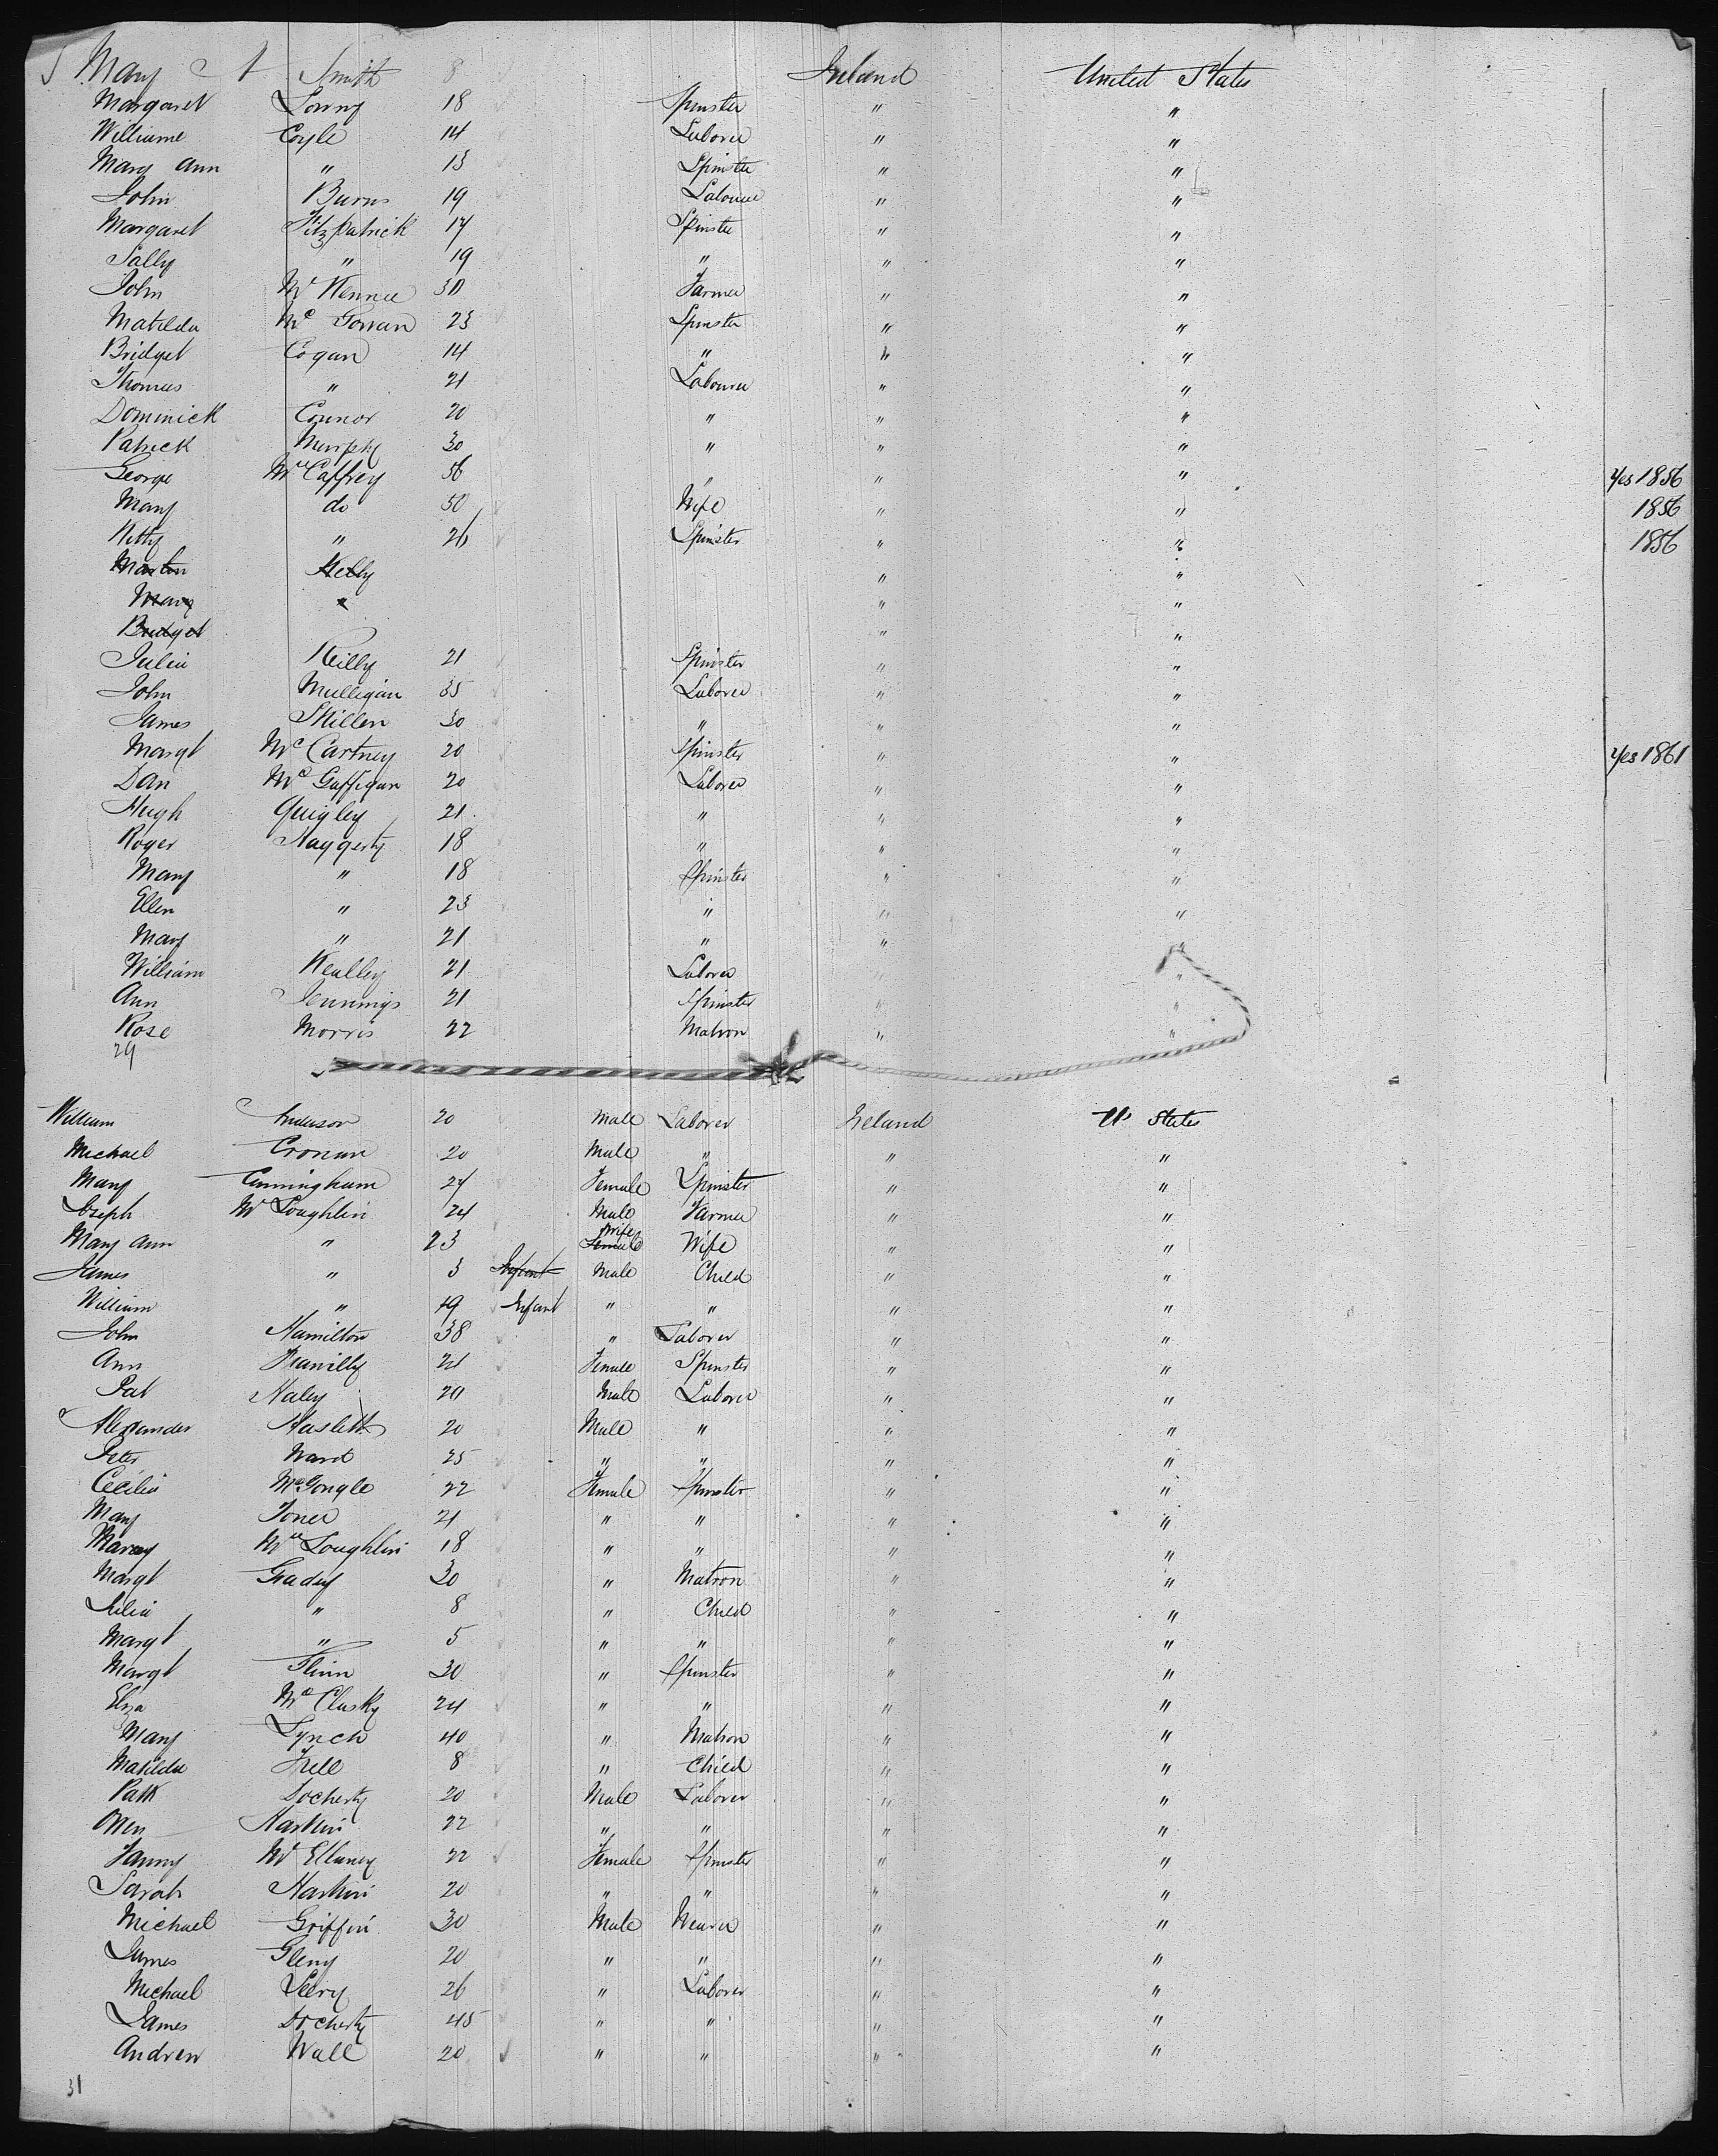 Mary A Smith 8 Ireland United States
Margaret 18 Spinster " "
William Coyle 14 Laborer " "
Mary Ann " 13 Spinster " "
John Burns 19 Labourer " "
Margaret Fitzpatrick 17 Spinster " "
Sally " 19 " " "
John 30 Farmer " "
Matilda Mc Gowan 23 Spinster " "
Bridget Cogan 14 " " "
Thomas " 21 Labourer " "
Dominick Connor 20 " " "
Patrick Murphy 30 " " "
George Mc Caffrey 56 " " " Yes 1856
Mary do 50 Wife " " 1856
Kitty " 26 Spinster " " 1856
Martin Kelly " "
Mary " " "
Bridget " "
Julia Reilly 21 Spinster " "
John Mulligan 35 Laborer " "
James Skillen 30 " " "
Margt Mc Cartney 20 Spinster " " Yes 1861
Dan Mc Gaffigan 20 Laborer " "
Hugh Quigley 21 " " "
Roger Haggerty 18 " " "
Mary " 18 Spinster " "
Ellen " 23 " " "
Mary " 21 " " "
William Kealley 21 Laborer " "
Ann Jennings 21 Spinster " "
Rose Morris 22 Matron " "
29
William Anderson 20 Male Laborer Ireland U States
Michael Cronan 20 Male " " "
Mary Cunningham 24 Female Spinster " "
Joseph Mc Loughlin 24 Male Farmer " "
Mary Ann " 23 Female Wife Wife " "
James " 3 Infant Male Child " "
William " 19 Infant " " " "
John Hamilton 38 " Laborer " "
Ann 21 Female Spinster " "
Pat Haley 20 Male Laborer " "
Alexander Haslett 20 Male " " "
Peter Ward 25 " " " "
Cecilia McGongle 22 Female Spinster " "
Mary Toner 21 " " " "
Mary Mc Loughlin 18 " " " "
Margt Grady 30 " Matron " "
Julia " 8 " Child " "
Margt " 5 " " " "
Margt Flinn 30 " Spinster " "
Eliza Mc Clusky 24 " " " "
Mary Lynch 40 " Matron " "
Matilda 8 " Child " "
Patk Docherty 20 Male Laborer " "
Owen Harkin 22 " " " "
Fanny Mc Elhaney 22 Female Spinster " "
Sarah Harkin 20 " " " "
Michael Griffin 30 Male Weaver " "
James Gleny 20 " " " "
Michael Leery 26 " Laborer " "
James Docherty 45 " " " "
Andrew Wall 20 " " " "
31